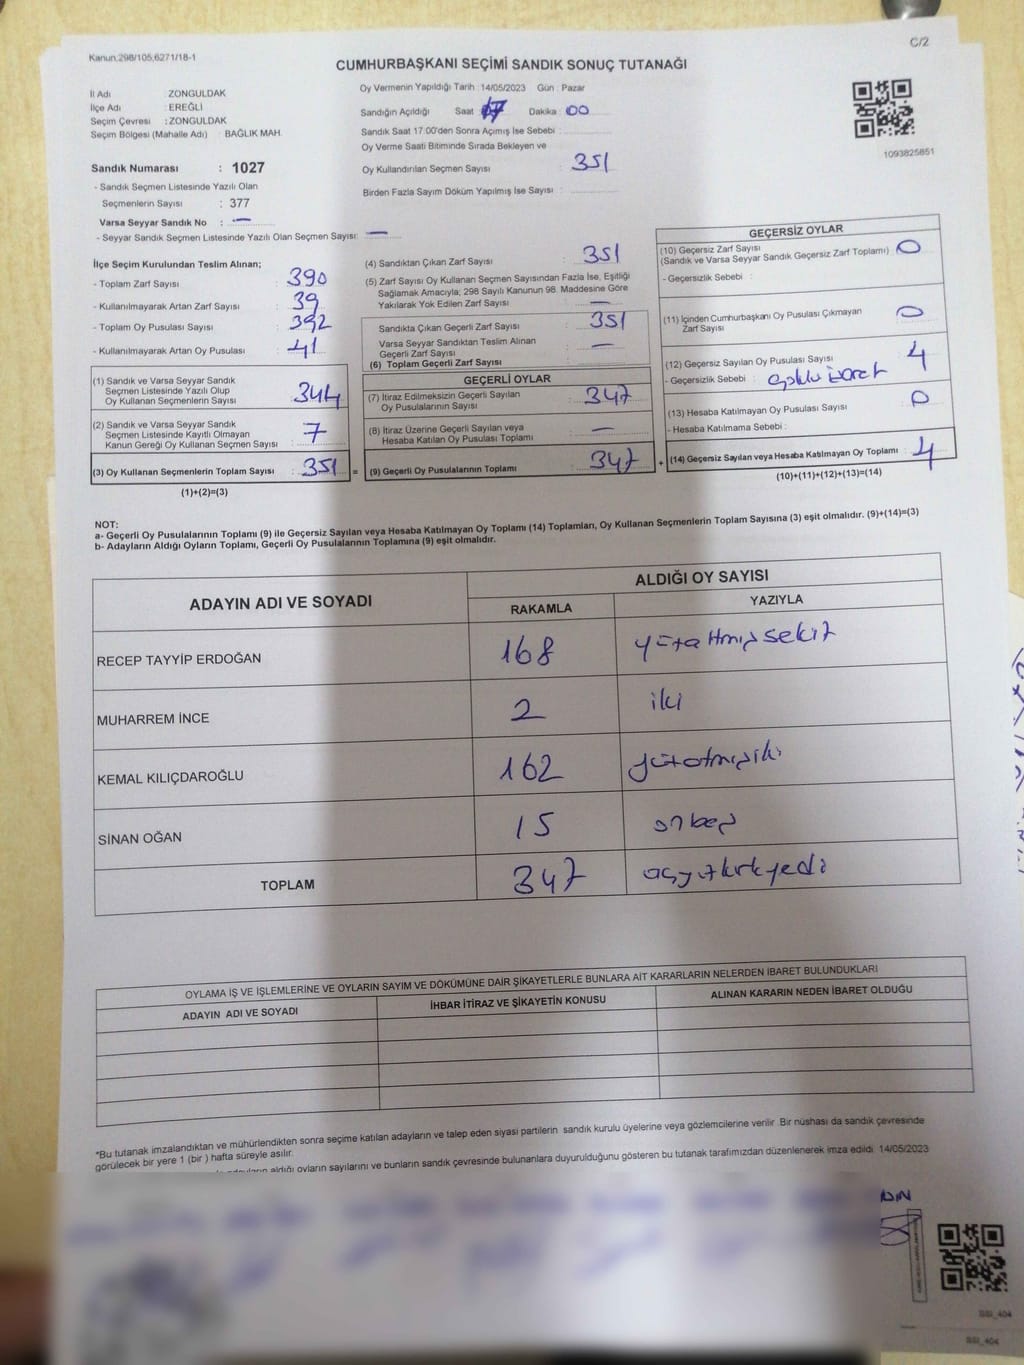 Kanun,298/105,6271/18-1
C/2
CUMHURBAŞKANI SEÇİMİ SANDIK SONUÇ TUTANAĞI
İl Adı : ZONGULDAK
İlçe Adı : EREĞLİ
Seçim Çevresi : ZONGULDAK
Seçim Bölgesi (Mahalle Adı) : BAĞLIK MAH.
Sandık Numarası : 1027
- Sandık Seçmen Listesinde Yazılı Olan
Seçmenlerin Sayısı : 377
Varsa Seyyar Sandık No : —
- Seyyar Sandık Seçmen Listesinde Yazılı Olan Seçmen Sayısı: —
Oy Vermenin Yapıldığı Tarih :14/05/2023 Gün : Pazar
Sandığın Açıldığı Saat : 17 Dakika : 00
Sandık Saat 17:00'den Sonra Açımış İse Sebebi :
Oy Verme Saati Bitiminde Sırada Bekleyen ve
Oy Kullandırılan Seçmen Sayısı : 351
Birden Fazla Sayım Döküm Yapılmış İse Sayısı :
1093825851
İlçe Seçim Kurulundan Teslim Alınan;
- Toplam Zarf Sayısı : 390
- Kullanılmayarak Artan Zarf Sayısı : 39
- Toplam Oy Pusulası Sayısı : 392
- Kullanılmayarak Artan Oy Pusulası : 41
(1) Sandık ve Varsa Seyyar Sandık
Seçmen Listesinde Yazılı Olup
Oy Kullanan Seçmenlerin Sayısı : 344
(2) Sandık ve Varsa Seyyar Sandık
Seçmen Listesinde Kayıtlı Olmayan
Kanun Gereği Oy Kullanan Seçmen Sayısı : 7
(3) Oy Kullanan Seçmenlerin Toplam Sayısı : 351 =
(1)+(2)=(3)
(4) Sandıktan Çıkan Zarf Sayısı : 351
(5) Zarf Sayısı Oy Kullanan Seçmen Sayısından Fazla İse, Eşitliği
Sağlamak Amacıyla; 298 Sayılı Kanunun 98. Maddesine Göre
Yakılarak Yok Edilen Zarf Sayısı : —
Sandıkta Çıkan Geçerli Zarf Sayısı : 351
Varsa Seyyar Sandıktan Teslim Alınan
Geçerli Zarf Sayısı : —
(6) Toplam Geçerli Zarf Sayısı :
GEÇERLİ OYLAR
(7) İtiraz Edilmeksizin Geçerli Sayılan
Oy Pusulalarının Sayısı : 347
(8) İtiraz Üzerine Geçerli Sayılan veya
Hesaba Katılan Oy Pusulası Toplamı : —
(9) Geçerli Oy Pusulalarının Toplamı : 347 +
GEÇERSİZ OYLAR
(10) Geçersiz Zarf Sayısı
(Sandık ve Varsa Seyyar Sandık Geçersiz Zarf Toplamı) : 0
- Geçersizlik Sebebi :
(11) İçinden Cumhurbaşkanı Oy Pusulası Çıkmayan
Zarf Sayısı : 0
(12) Geçersiz Sayılan Oy Pusulası Sayısı : 4
- Geçersizlik Sebebi :
(13) Hesaba Katılmayan Oy Pusulası Sayısı : 0
- Hesaba Katılmama Sebebi :
(14) Geçersiz Sayılan veya Hesaba Katılmayan Oy Toplamı : 4
(10)+(11)+(12)+(13)=(14)
NOT:
a- Geçerli Oy Pusulalarının Toplamı (9) ile Geçersiz Sayılan veya Hesaba Katılmayan Oy Toplamı (14) Toplamları, Oy Kullanan Seçmenlerin Toplam Sayısına (3) eşit olmalıdır. (9)+(14)=(3)
b- Adayların Aldığı Oyların Toplamı, Geçerli Oy Pusulalarının Toplamına (9) eşit olmalıdır.
ADAYIN ADI VE SOYADI ALDIĞI OY SAYISI
RAKAMLA YAZIYLA
RECEP TAYYİP ERDOĞAN 168 yüzaltmışsekiz
MUHARREM İNCE 2 iki
KEMAL KILIÇDAROĞLU 162 yüzatmışiki
SİNAN OĞAN 15 onbeş
TOPLAM 347 üçyüzkırkyedi
OYLAMA İŞ VE İŞLEMLERİNE VE OYLARIN SAYIM VE DÖKÜMÜNE DAİR ŞİKAYETLERLE BUNLARA AİT KARARLARIN NELERDEN İBARET BULUNDUKLARI
ADAYIN ADI VE SOYADI İHBAR İTİRAZ VE ŞİKAYETİN KONUSU ALINAN KARARIN NEDEN İBARET OLDUĞU
*Bu tutanak imzalandıktan ve mühürlendikten sonra seçime katılan adayların ve talep eden siyasi partilerin sandık kurulu üyelerine veya gözlemcilerine verilir. Bir nüshası da sandık çevresinde
görülecek bir yere 1 (bir ) hafta süreyle asılır.
aldığı oyların sayılarını ve bunların sandık çevresinde bulunanlara duyurulduğunu gösteren bu tutanak tarafımızdan düzenlenerek imza edildi. 14/05/2023
SSI_404
SSI_404